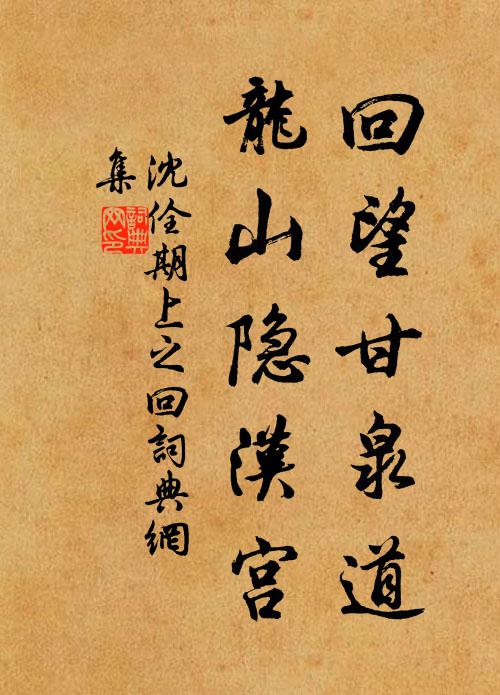 回望甘泉道
龍山隐漢宫
沈佺期上之回詞典網
集
詞典網印